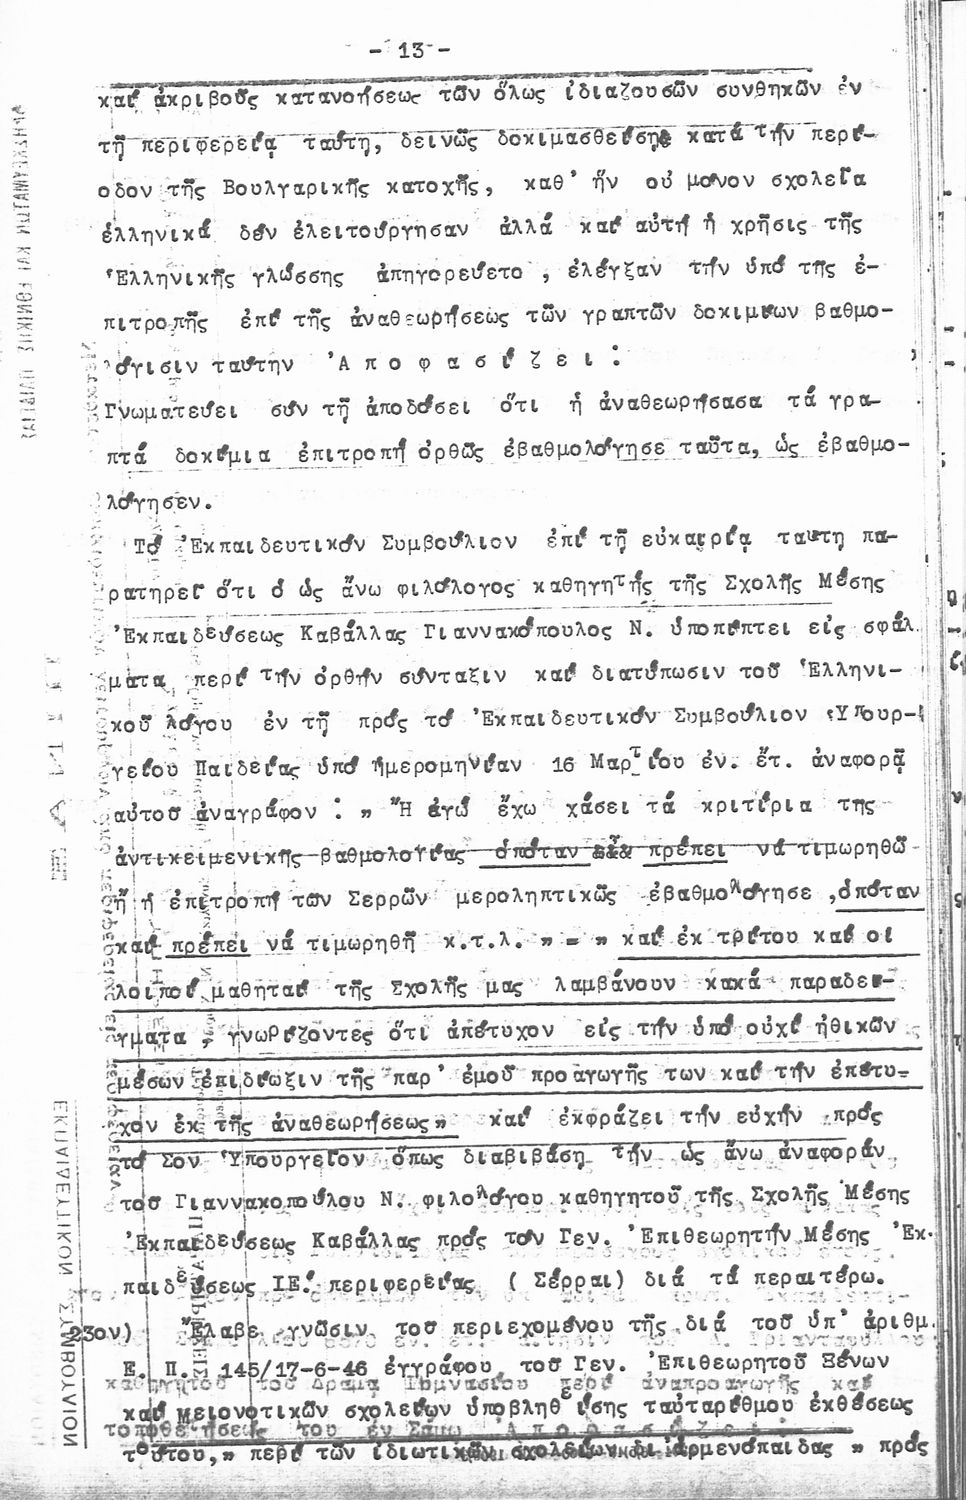 - 13 -
καί ἀκριβοῦς κατανοήσεως τῶν ὅλως ἰδιαζουσῶν συνθηκῶν ἐν
τῇ περιφερείᾳ ταύτῃ, δεινῶς δοκιμασθείσῃς κατά τήν περί-
οδον τῆς Βουλγαρικῆς κατοχῆς, καθ' ἥν οὐ μόνον σχολεῖα
ἑλληνικά δέν ἐλειτούργησαν ἀλλά καί αὐτή ἡ χρῆσις τῆς
Ἑλληνικῆς γλώσσης ἀπηγορεύετο , ἐλέγξαν τήν ὑπό τῆς ἐ-
πιτροπῆς ἐπί τῆς ἀναθεωρήσεως τῶν γραπτῶν δοκιμίων βαθμο-
λόγισιν ταύτην Ἀ π ο φ α σ ί ζ ε ι :
Γνωματεύει σύν τῇ ἀποδόσει ὅτι ἡ ἀναθεωρήσασα τά γρα-
πτά δοκίμια ἐπιτροπή ὀρθῶς ἐβαθμολόγησε ταῦτα, ὡς ἐβαθμο-
λόγησεν.
Τό Ἐκπαιδευτικόν Συμβούλιον ἐπί τῇ εὐκαιρίᾳ ταύτῃ πα-
ρατηρεῖ ὅτι ὁ ὡς ἄνω φιλόλογος καθηγητής τῆς Σχολῆς Μέσης
Ἐκπαιδεύσεως Καβάλλας Γιαννακόπουλος Ν. ὑποπίπτει εἰς σφάλ
ματα περί τήν ὀρθήν σύνταξιν καί διατύπωσιν τοῦ Ἑλληνι-
κοῦ λόγου ἐν τῇ πρός τό Ἐκπαιδευτικόν Συμβούλιον Ὑπουρ-
γείου Παιδείας ὑπό ἡμερομηνίαν 16 Μαρτίου ἐν. ἔτ. ἀναφορᾷ
αὐτοῦ ἀναγράφον : „ Ἤ ἐγώ ἔχω χάσει τά κριτίρια της
ἀντικειμενικῆς βαθμολογίας ὁπόταν πρέπει νά τιμωρηθῶ
ἤ ἡ ἐπιτροπή των Σερρῶν μεροληπτικῶς ἐβαθμολόγησε ,ὁπόταν
καί πρέπει νά τιμωρηθῇ κ.τ.λ. „ = „ καί ἐκ τρίτου καί οἱ
λοιποί μαθηταί τῆς Σχολῆς μας λαμβάνουν κακά παραδεί-
γματα , γνωρίζοντες ὅτι ἀπέτυχον εἰς τήν ὑπό οὐχί ἠθικῶν
μέσων ἐπιδίωξιν τῆς παρ' ἐμοῦ προαγωγῆς των καί τήν ἐπέτυ-
χον ἐκ τῆς ἀναθεωρήσεως „ καί ἐκφράζει τήν εὐχήν πρός
τό Σον Ὑπουργεῖον ὅπως διαβιβάσῃ τήν ὡς ἄνω ἀναφοράν
τοῦ Γιαννακοπούλου Ν. φιλολόγου καθηγητοῦ τῆς Σχολῆς Μέσης
Ἐκπαιδεύσεως Καβάλλας πρός τόν Γεν. Ἐπιθεωρητήν Μέσης Ἐκ-
παιδεύσεως ΙΕ. περιφερείας ( Σέρραι) διά τά περαιτέρω.
23ον) Ἔλαβε γνῶσιν τοῦ περιεχομένου τῆς διά τοῦ ὑπ' ἀριθμ.
Ε. Π. 145/17-6-46 ἐγγράφου τοῦ Γεν. Ἐπιθεωρητοῦ Ξένων
καί Μειονοτικῶν σχολείων ὑποβληθείσης ταυταρίθμου ἐκθέσεως
τούτου,„ περί τῶν ἰδιωτικῶν σχολείων δι' ἀρμενόπαιδας „ πρός
ΕΚΠΑΙΔΕΥΤΙΚΟΝ ΣΥΜΒΟΥΛΙΟΝ